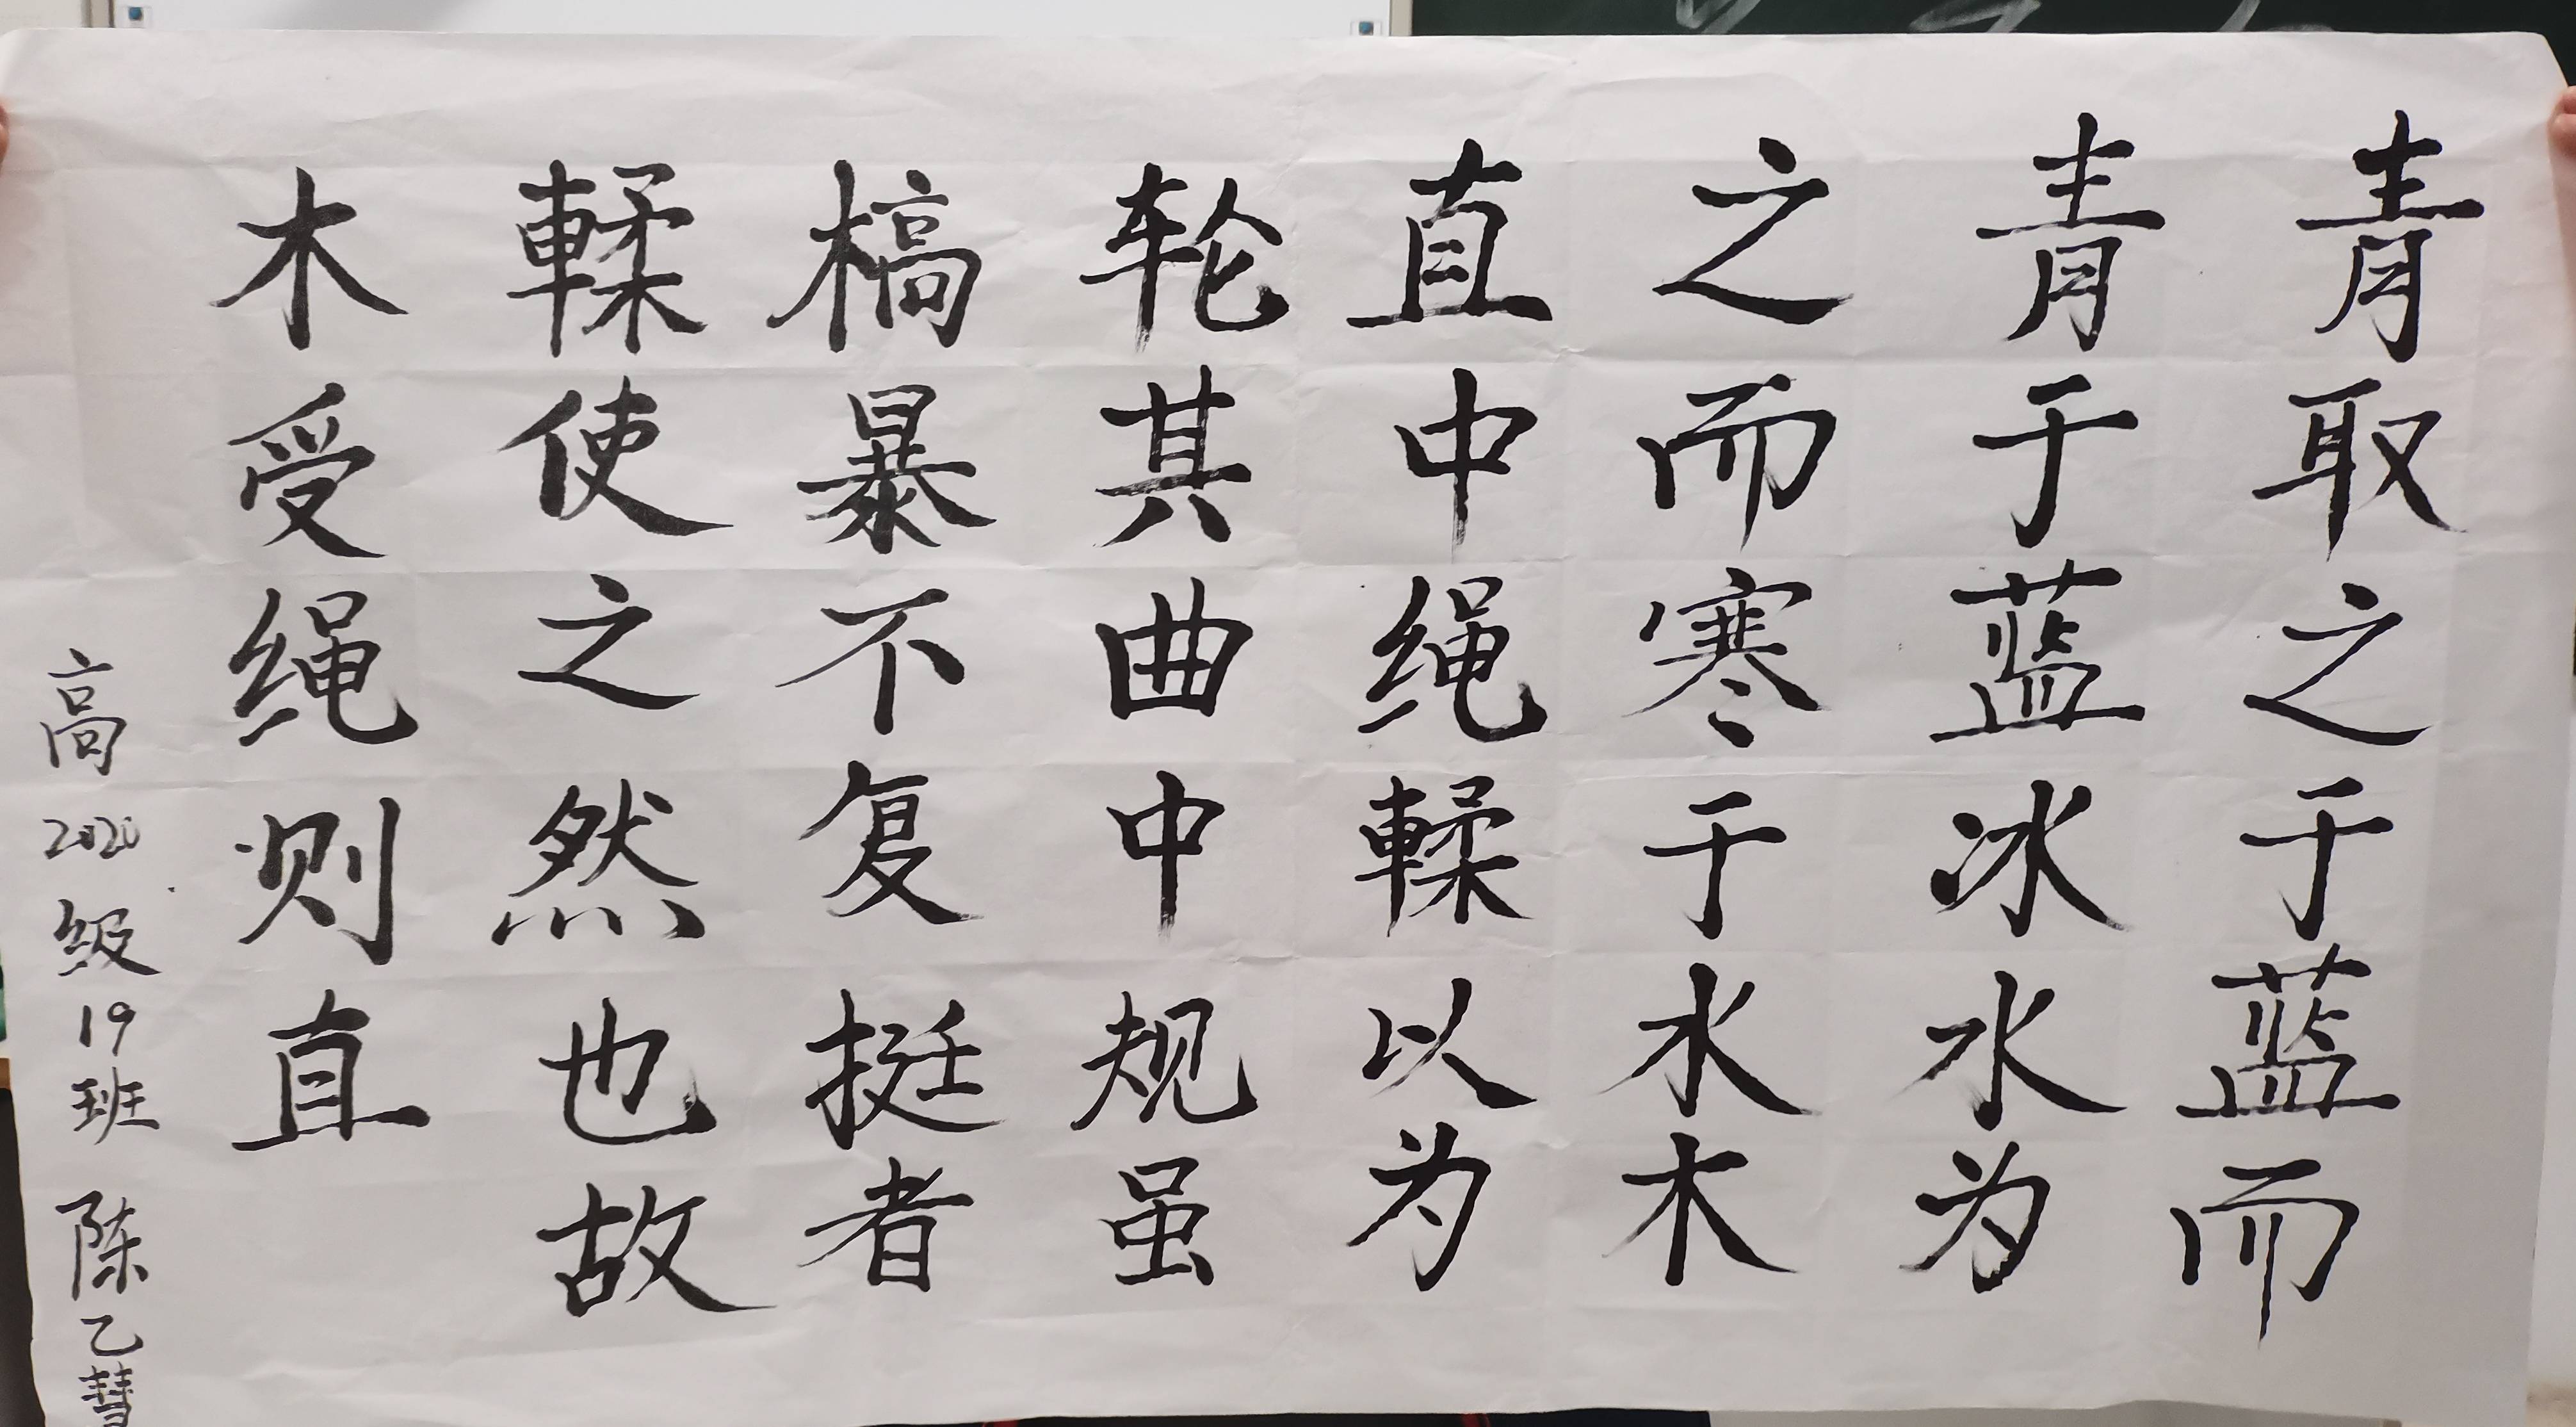 青取之于蓝而
青于蓝冰水为
之而寒于水木
直中绳輮以为
轮其曲中规虽
槁暴不复挺者
輮使之然也故
木受绳则直
高2020级19班 陈乙慧